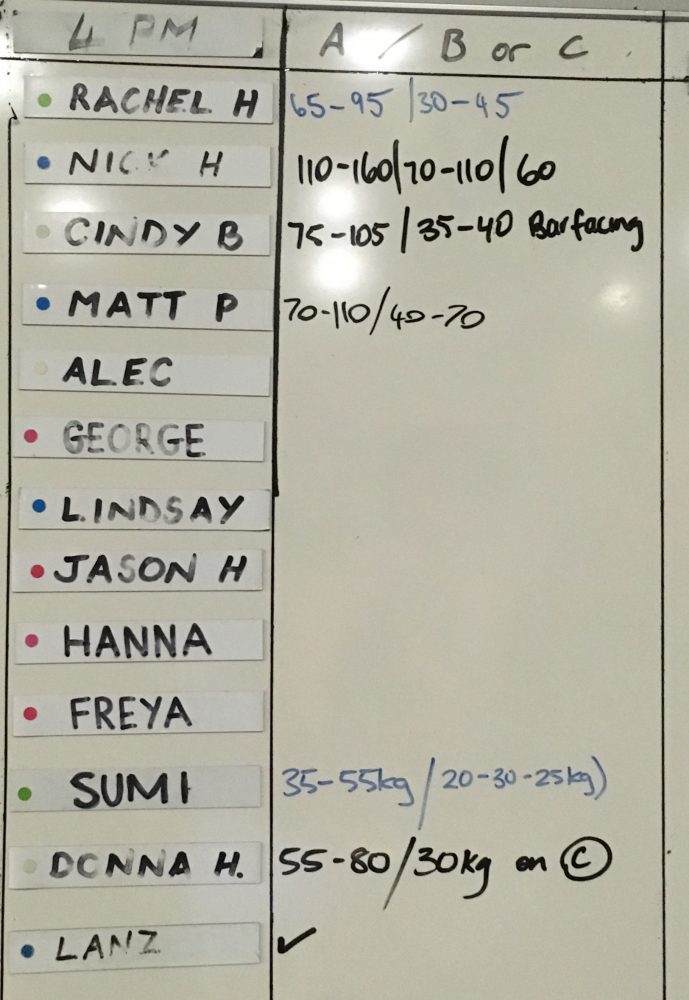 4 PM A / B or C
RACHEL H 65-95 / 30-45
NICK H 110-160/70-110/60
CINDY B 75-105 / 35-40 Barfacing
MATT P 70-110/40-70
ALEC
GEORGE
LINDSAY
JASON H
HANNA
FREYA
SUMI 35-55kg / 20-30-25kg)
DONNA H. 55-80/30kg on C
LANZ ✓